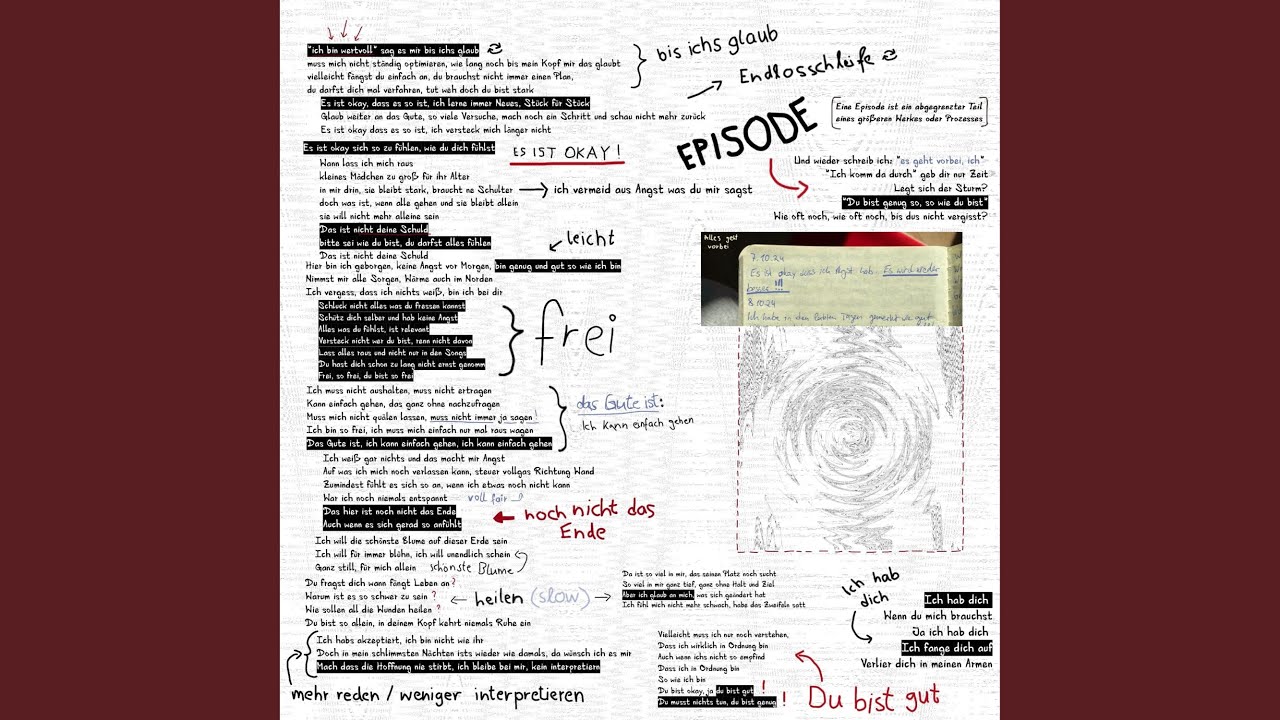 "ich bin wertvoll" sag es mir bis ichs glaub
muss mich nicht ständig optimieren, wie lang noch bis mein Kopf mir das glaubt
vielleicht fängst du einfach an, du brauchst nicht immer einen Plan,
du darfst dich mal verfahren, tut weh doch du bist stark
Es ist okay, dass es so ist, ich lerne immer Neues, Stück für Stück
Glaub weiter an das Gute, so viele Versuche, mach noch ein Schritt und schau nicht mehr zurück
Es ist okay dass es so ist, ich versteck mich länger nicht
Es ist okay sich so zu fühlen, wie du dich fühlst
ES IST OKAY!
bis ichs glaub
Endlosschleife
EPISODE
Eine Episode ist ein abgegrenzter Teil
eines größeren Werkes oder Prozesses
Wann lass ich mich raus
kleines Mädchen zu groß für ihr Alter
in mir drin, sie bleibt stark, braucht ne Schulter
ich vermeid aus Angst was du mir sagst
doch was ist, wenn alle gehen und sie bleibt allein
sie will nicht mehr alleine sein
Das ist nicht deine Schuld
bitte sei wie du bist, du darfst alles fühlen
Das ist nicht deine Schuld
leicht
Hier bin ich geborgen, keine Angst vor Morgen, bin genug und gut so wie ich bin
Nimmst mir alle Sorgen, Wärme auch im Norden
Ich vergess, dass ich nichts weiß, bin ich bei dir
Schluck nicht alles was du fressen kannst
Schütz dich selber und hab keine Angst
Alles was du fühlst, ist relevant
Versteck nicht wer du bist, renn nicht davon
Lass alles raus und nicht nur in den Songs
Du hast dich schon zu lang nicht ernst genomm
Frei, so frei, du bist so frei
frei
Ich muss nicht aushalten, muss nicht ertragen
Kann einfach gehen, das ganz ohne nachzufragen
Muss mich nicht quälen lassen, muss nicht immer ja sagen!
Ich bin so frei, ich muss mich einfach nur mal raus wagen
Das Gute ist, ich kann einfach gehen, ich kann einfach gehen
das Gute ist:
Ich kann einfach gehen
Ich weiß gar nichts und das macht mir Angst
Auf was ich mich noch verlassen kann, steuer vollgas Richtung Wand
Zumindest fühlt es sich so an, wenn ich etwas noch nicht kann
War ich noch niemals entspannt
voll fair
Das hier ist noch nicht das Ende
Auch wenn es sich gerad so anfühlt
noch nicht das
Ende
Ich will die schönste Blume auf dieser Erde sein
Ich will für immer blühn, ich will unendlich schein
Ganz still, für mich allein
schönste Blume
Du fragst dich wann fängt Leben an?
Warum ist es so schwer zu sein?
Wie sollen all die Wunden heilen?
Du bist so allein, in deinem Kopf kehrt niemals Ruhe ein
heilen (slow)
Ich habs akzeptiert, ich bin nicht wie ihr
Doch in mein schlimmsten Nächten ists wieder wie damals, da wünsch ich es mir
Mach dass die Hoffnung nie stirbt, ich bleibe bei mir, kein interpretiern
mehr reden / weniger interpretieren
Und wieder schreib ich: "es geht vorbei, ich"
"Ich komm da durch" geb dir nur Zeit
Legt sich der Sturm?
"Du bist genug so, so wie du bist"
Wie oft noch, wie oft noch, bis dus nicht vergisst?
Alles geht
vorbei
7.10.24
Es ist okay dass ich Angst hab. Es wird wieder
besser !!!
8.10.24
Ich habe in den letzten Tagen gemerkt wie gut
Da ist so viel in mir, das seinen Platz noch sucht
So viel in mir ganz tief, ganz ohne Halt und Ziel
Aber ich glaub an mich, was sich geändert hat
Ich fühl mich nicht mehr schwach, habe das Zweifeln satt
Vielleicht muss ich nur noch verstehen,
Dass ich wirklich in Ordnung bin
Auch wenn ichs nicht so empfind
Dass ich in Ordnung bin
So wie ich bin
Du bist okay, ja du bist gut !
Du musst nichts tun, du bist genug !
Du bist gut
Ich hab
dich
Ich hab dich
Wenn du mich brauchst
Ja ich hab dich
Ich fange dich auf
Verlier dich in meinen Armen